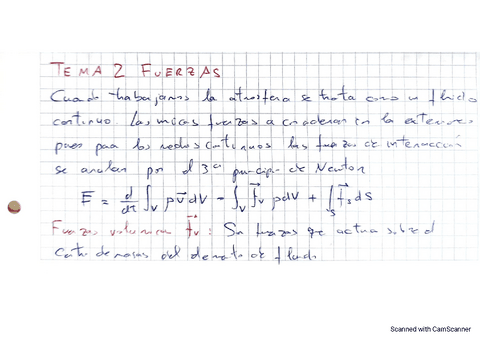 TEMA 2 FUERZAS
Cuando trabajamos la atmósfera se trata como un fluido
continuo. Las únicas fuerzas a considerar son las exteriores
pues para los medios continuos las fuerzas de interacción
se anulan por el 3er principio de Newton
E = d/dt ∫_V ρv⃗ dV = ∫_V f⃗_v ρdV + ∫_S f⃗_s dS
Fuerzas volumen f⃗_v: Son fuerzas que actúan sobre el
de masas del elemento de fluido
Scanned with CamScanner